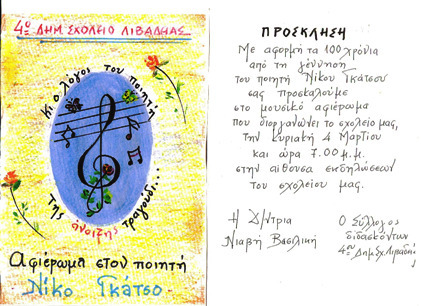 4ο ΔΗΜ ΣΧΟΛΕΙΟ ΛΙΒΑΔΕΙΑΣ
Κι ο λόγος του ποιητή
της άνοιξης τραγούδι...
Αφιέρωμα στον ποιητή
Νίκο Γκάτσο
ΠΡΟΣΚΛΗΣΗ
Με αφορμή τα 100 χρόνια
από τη γέννηση
του ποιητή Νίκου Γκάτσου
σας προσκαλούμε
στο μουσικό αφιέρωμα
που διοργανώνει το σχολείο μας,
την Κυριακή 4 Μαρτίου
και ώρα 7.00 μ.μ.
στην αίθουσα εκδηλώσεων
του σχολείου μας.
Η Δ/ντρια
Νιαβή Βασιλική
Ο Σύλλογος
διδασκόντων
4ου Δημ. Σχ. Λιβαδειάς